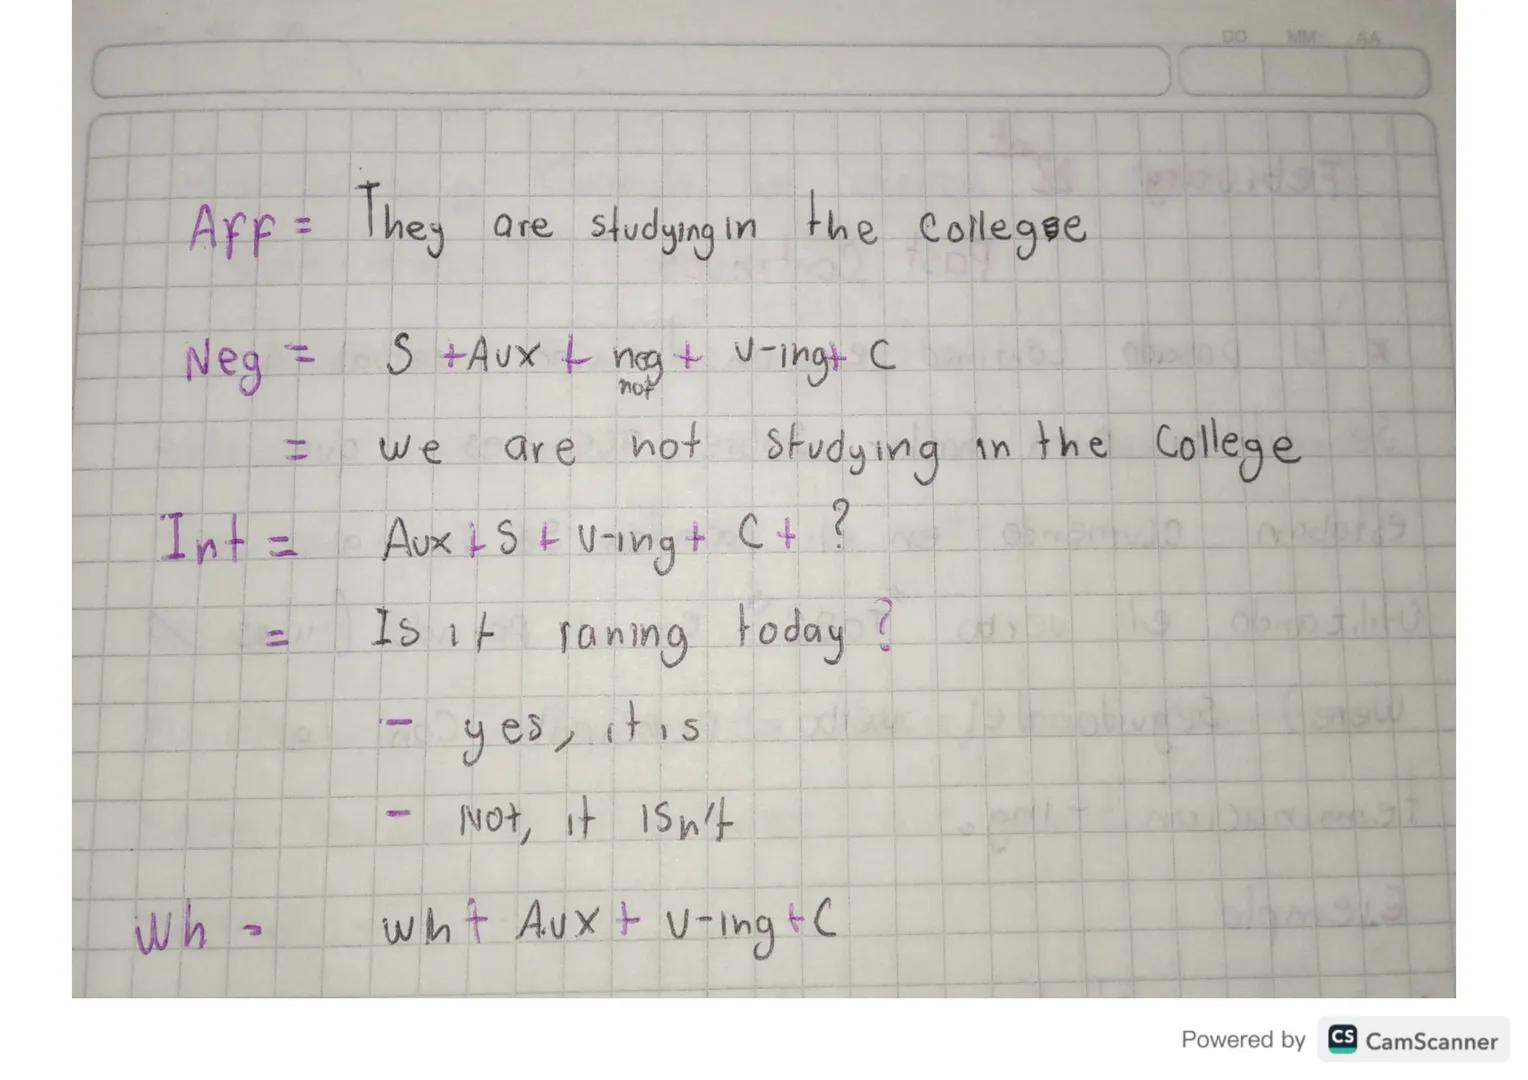 DD MM AA
Aff = They are studying in the college
Neg = S + Aux + neg + V-ing + C
not
= we are not studying in the College
Int = Aux + S + V-ing + C + ?
= Is it raning today?
- yes, it is
- Not, it isn't
Wh = wh + Aux + V-ing + C
Powered by CS CamScanner